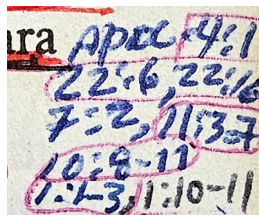 ara APOC. 4:1
22:6, 22:16
7:2, 11:3-7
10:8-11
1:1-3, 1:10-11